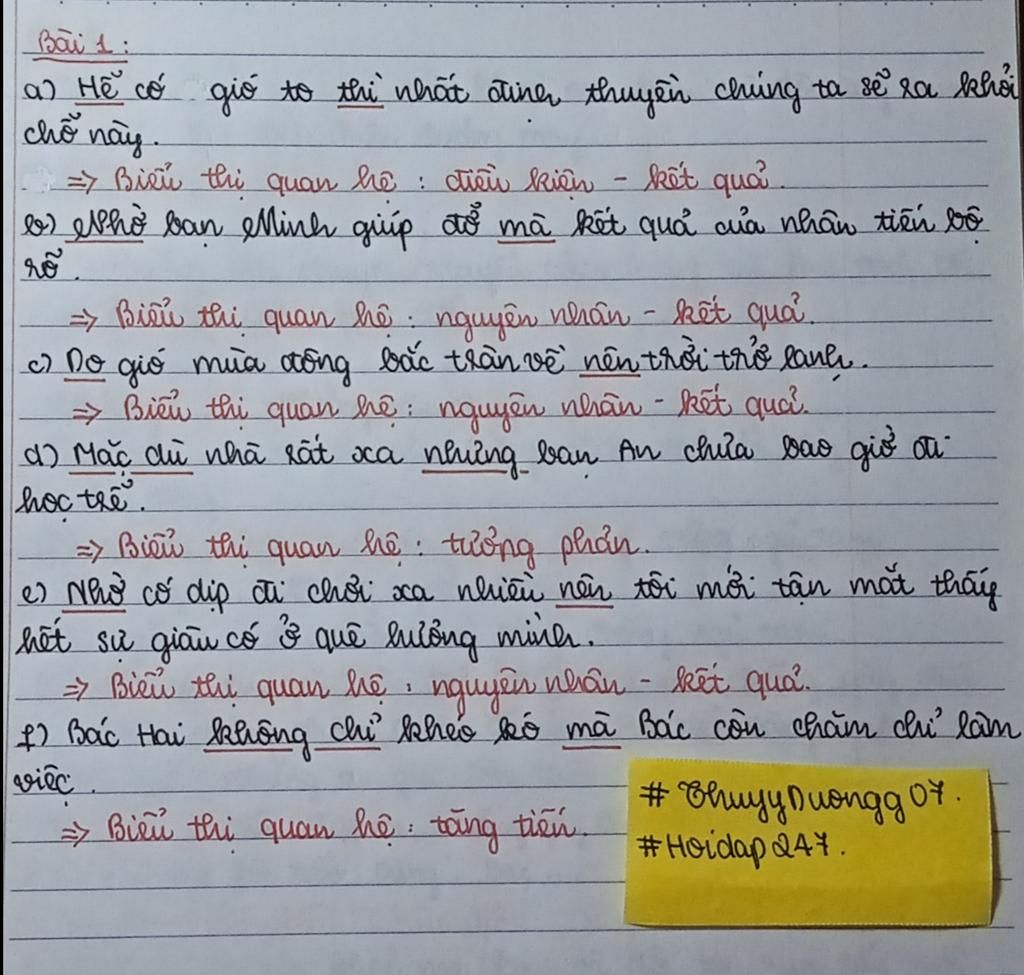 Bài 1:
a) Hễ có gió to thì nhất định thuyền chúng ta sẽ ra khỏi
chỗ này.
=> Biểu thị quan hệ: điều kiện - kết quả.
b) Nhờ bạn Minh giúp đỡ mà kết quả của nhân tiến bộ
rõ.
=> Biểu thị quan hệ: nguyên nhân - kết quả.
c) Do gió mùa đông bắc tràn về nên trời trở lạnh.
=> Biểu thị quan hệ: nguyên nhân - kết quả.
d) Mặc dù nhà rất xa nhưng bạn An chưa bao giờ đi
học trễ.
=> Biểu thị quan hệ: tương phản.
e) Nhờ có dịp đi chơi xa nhiều nên tôi mới tận mắt thấy
hết sự giàu có ở quê hương mình.
=> Biểu thị quan hệ: nguyên nhân - kết quả.
f) Bác Hai không chỉ khéo léo mà Bác còn chăm chỉ làm
việc.
=> Biểu thị quan hệ: tăng tiến.
#ThuyyDuongg07.
#Hoidap247.